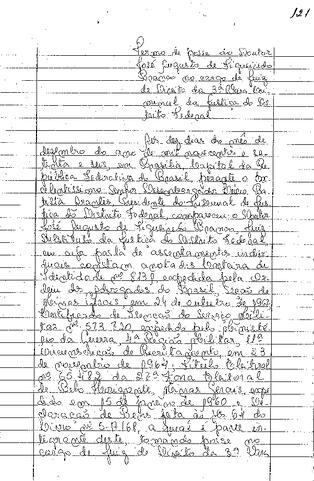 121
Termo de posse do Doutor
José Augusto de Figueiredo
Branco no cargo de Juiz
de Direito da 3ª Vara
da Justiça do Dis
trito Federal
dez dias do mês de
dezembro do ano de mil novecentos e se
e seis, em Brasília, Capital da Re
pública Federativa do Brasil, perante o Ex
celentíssimo Senhor Desembargador
Presidente do Tribunal de Jus
tiça do Distrito Federal, compareceu o Doutor
José Augusto de Figueiredo Branco, Juiz
Substituto da Justiça do Distrito Federal,
em cuja pasta de assentamentos indivi
duais constam anotadas Carteira de
Identidade nº expedida pela Or
dem dos Advogados do Brasil, Seção de
Minas Gerais, em 24 de outubro de
Certificado de Isenção do Serviço Mili
tar nº 573.720, expedido pelo Ministé
rio da Guerra, 4ª Região Militar, 11ª
Circunscrição de Recrutamento, em 23
de novembro de 1964; Título Eleitoral
nº da 22ª Zona Eleitoral
de Minas Gerais, expe
dido em 15 de janeiro de 1960 e De
claração de Bens feita às fls 67 do
Livro nº a qual é parte in
tegrante deste, tomando posse no
cargo de Juiz de Direito da 3ª Vara